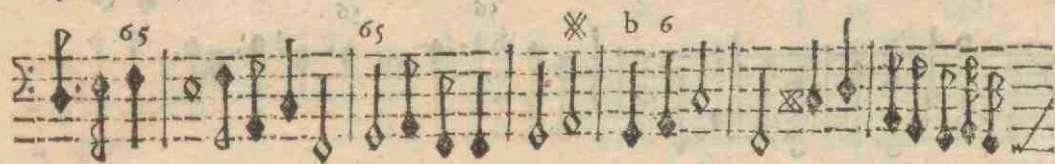 65 65 b 6